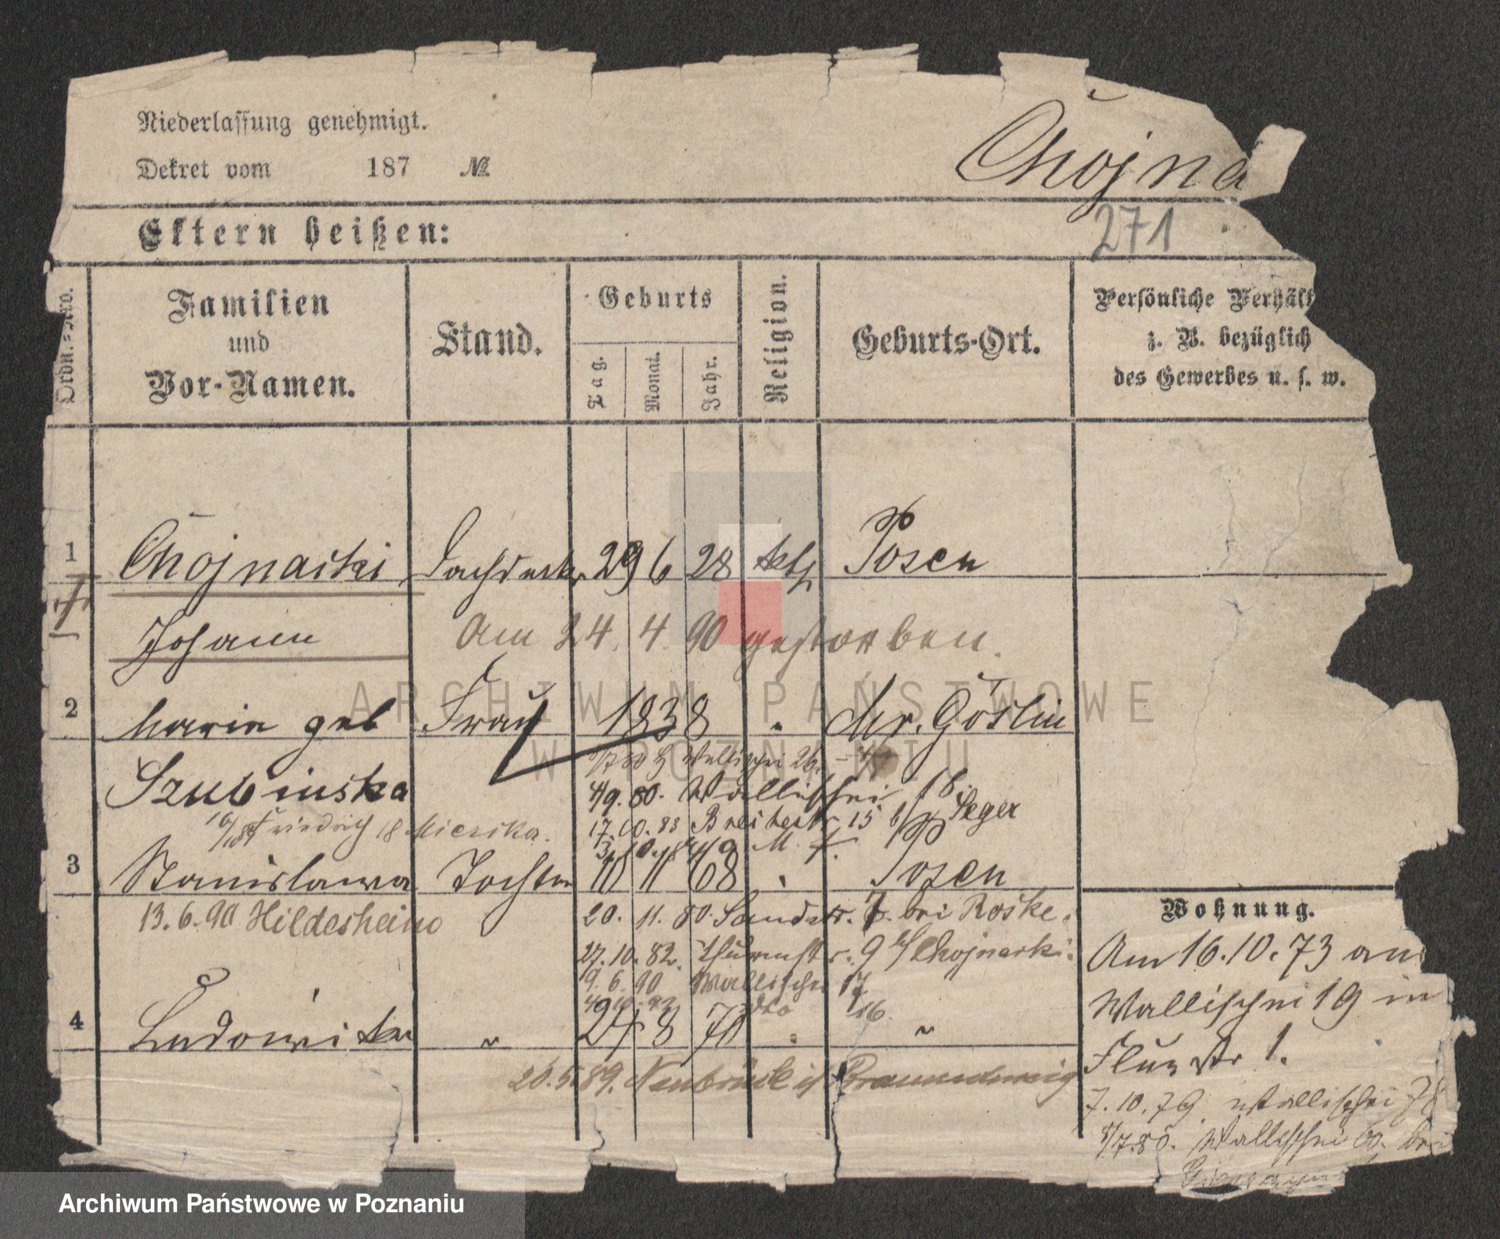 Niederlassung genehmigt.
Dekret vom 187 №
Chojna
271
Eltern heißen:
Ordn.-Nro.
Familien
und
Vor-Namen.
Stand.
Geburts
Tag.
Monat.
Jahr.
Religion.
Geburts-Ort.
Persönliche Verhält
z. B. bezüglich
des Gewerbes u. s. w.
1 Chojnacki Dachdecker 29 6 28 kth Posen
Johann Am 24. 4. 90 gestorben.
2 Marie geb Frau 1838 " Mr. Goslin
Szubinska
4/9. 80. Wallischei
17. 10. 83 Breitestr. 15 b/ Jeger
Friedrich 18 Mieczka.
3 Stanislawa Tochter 10 11 68 " Posen
13. 6. 90 Hildesheim 20. 11. 80. Sandstr. 7. bei Roske.
27. 10. 82. Thurmstr. 9 b/ Chojnacki.
9. 6. 90 Wallischei 17
4 Ludowika " 24 8 70 " "
26. 5. 89. Neubrück Braunschweig
Wohnung.
Am 16. 10. 73 an
Wallischei 19 in
Flur Str 1.
7. 10. 79 Wallischei
8/7. 80. Wallischei bei
ARCHIWUM PAŃSTWOWE
W POZNANIU
Archiwum Państwowe w Poznaniu